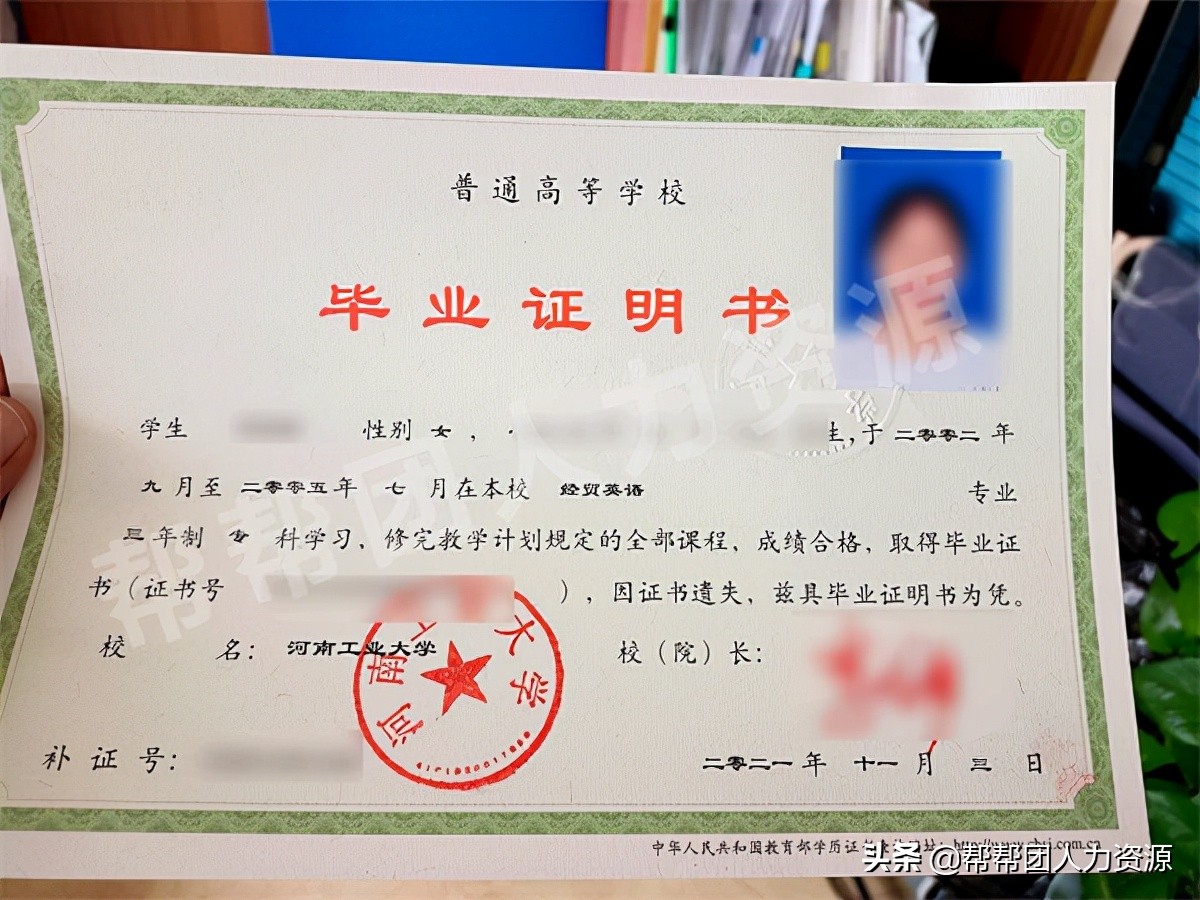 普通高等学校
毕业证明书
学生 性别 女， 生，于 二零零二 年
九 月至 二零零五年 七 月在本校 经贸英语 专业
三 年制 专 科学习，修完教学计划规定的全部课程，成绩合格，取得毕业证
书（证书号 ），因证书遗失，兹具毕业证明书为凭。
校 名： 河南工业大学 校（院）长：
河南工业大学
补 证 号： 二零二一 年 十一 月 三 日
中华人民共和国教育部学历证书查询网址：http://www.chsi.com.cn
帮帮团人力资源
头条 @帮帮团人力资源